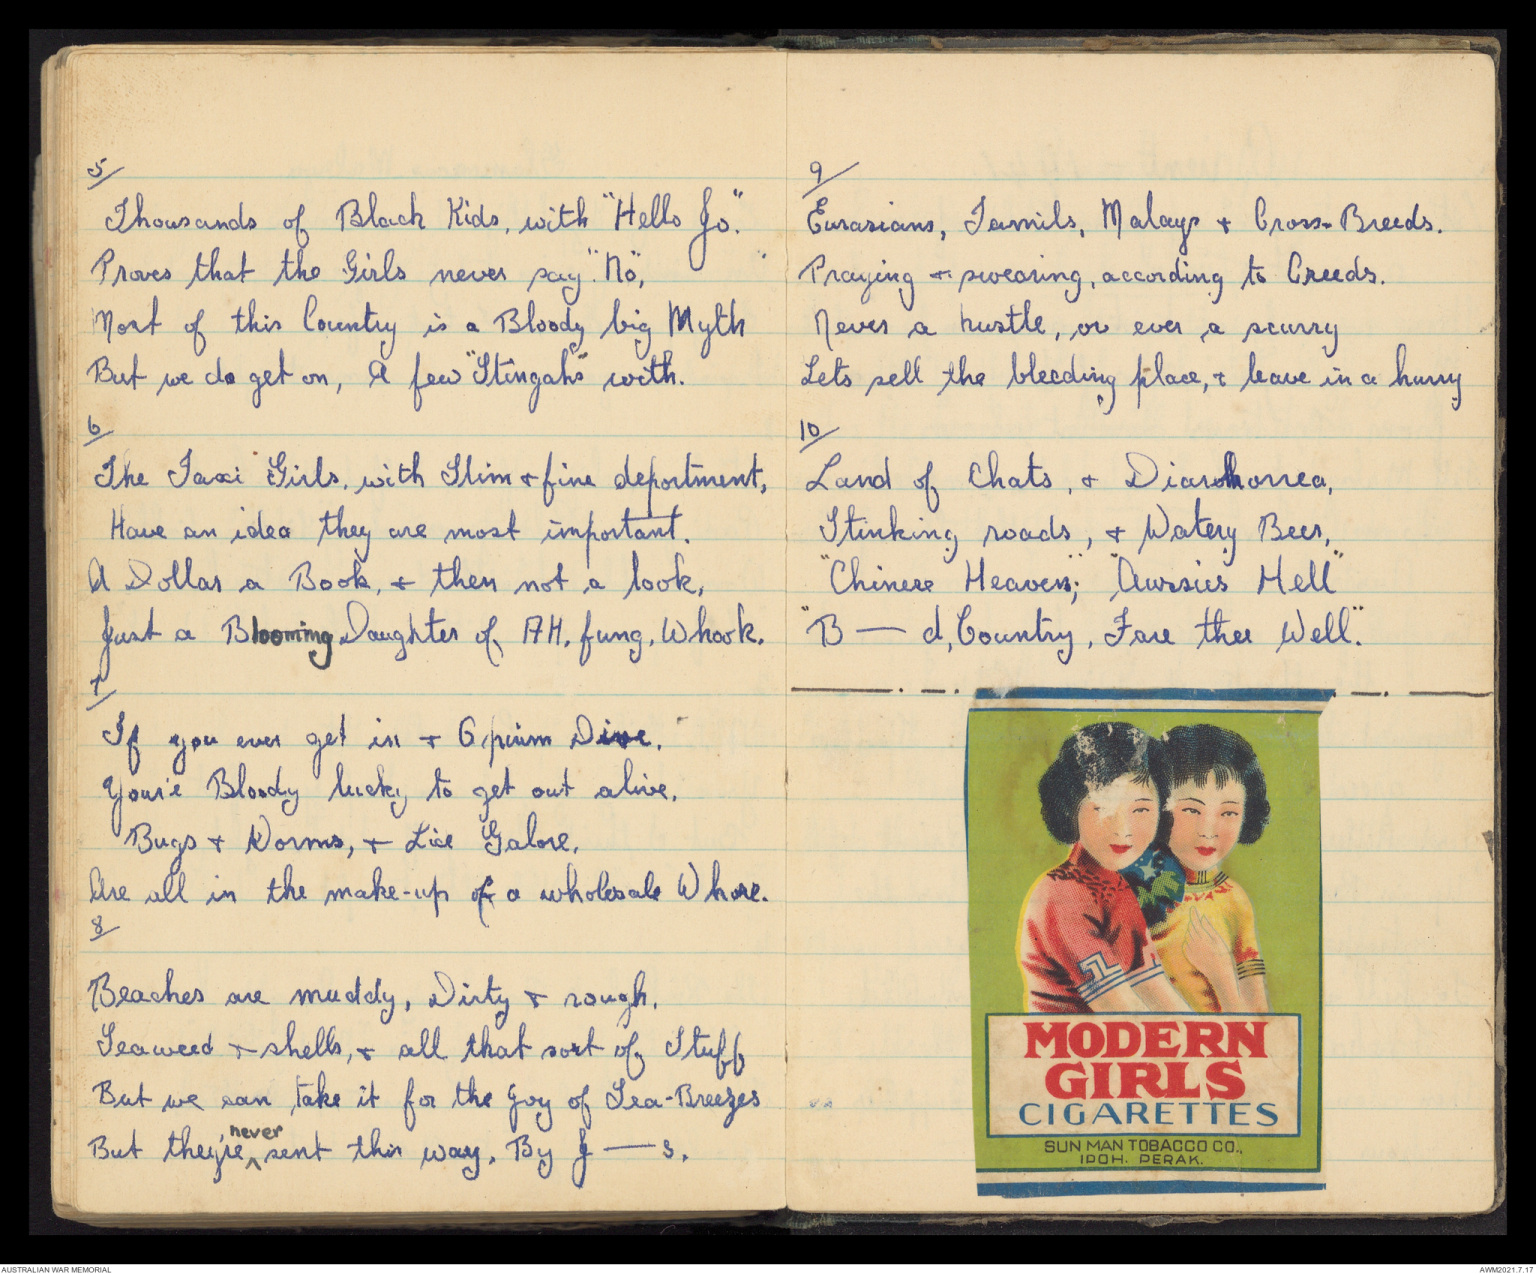 5/
Thousands of Black Kids, with "Hello Jo."
Proves that the Girls never say "No",
Most of this Country is a Bloody big Myth
But we do get on, A few "Stingahs" with.
6/
The Taxi Girls, with Slim & fine deportment,
Have an idea they are most important.
A Dollar a Book, & then not a look,
Just a Blooming Daughter of AH. fung. Whook.
7/
If you ever get in & Opium Dive,
You're Bloody lucky to get out alive,
Bugs & Worms, & Lice Galore,
Are all in the make-up of a wholesale Whore.
8/
Beaches are muddy, Dirty & rough,
Seaweed & shells, & all that sort of Stuff
But we can take it for the Joy of Sea-Breezes
But they're never sent this way, By J — s.
9/
Eurasians, Tamils, Malays & Cross-Breeds.
Praying & swearing, according to Creeds.
Never a hustle, or ever a scurry
Lets sell the bleeding place, & leave in a hurry
10/
Land of Chats, & Diarohorrea,
Stinking roads, & Watery Beer,
"Chinese Heaven"; "Aussies Hell"
"B — d, Country, Fare thee Well".
MODERN
GIRLS
CIGARETTES
SUN MAN TOBACCO CO.,
IPOH. PERAK.
AUSTRALIAN WAR MEMORIAL
AWM2021.7.17